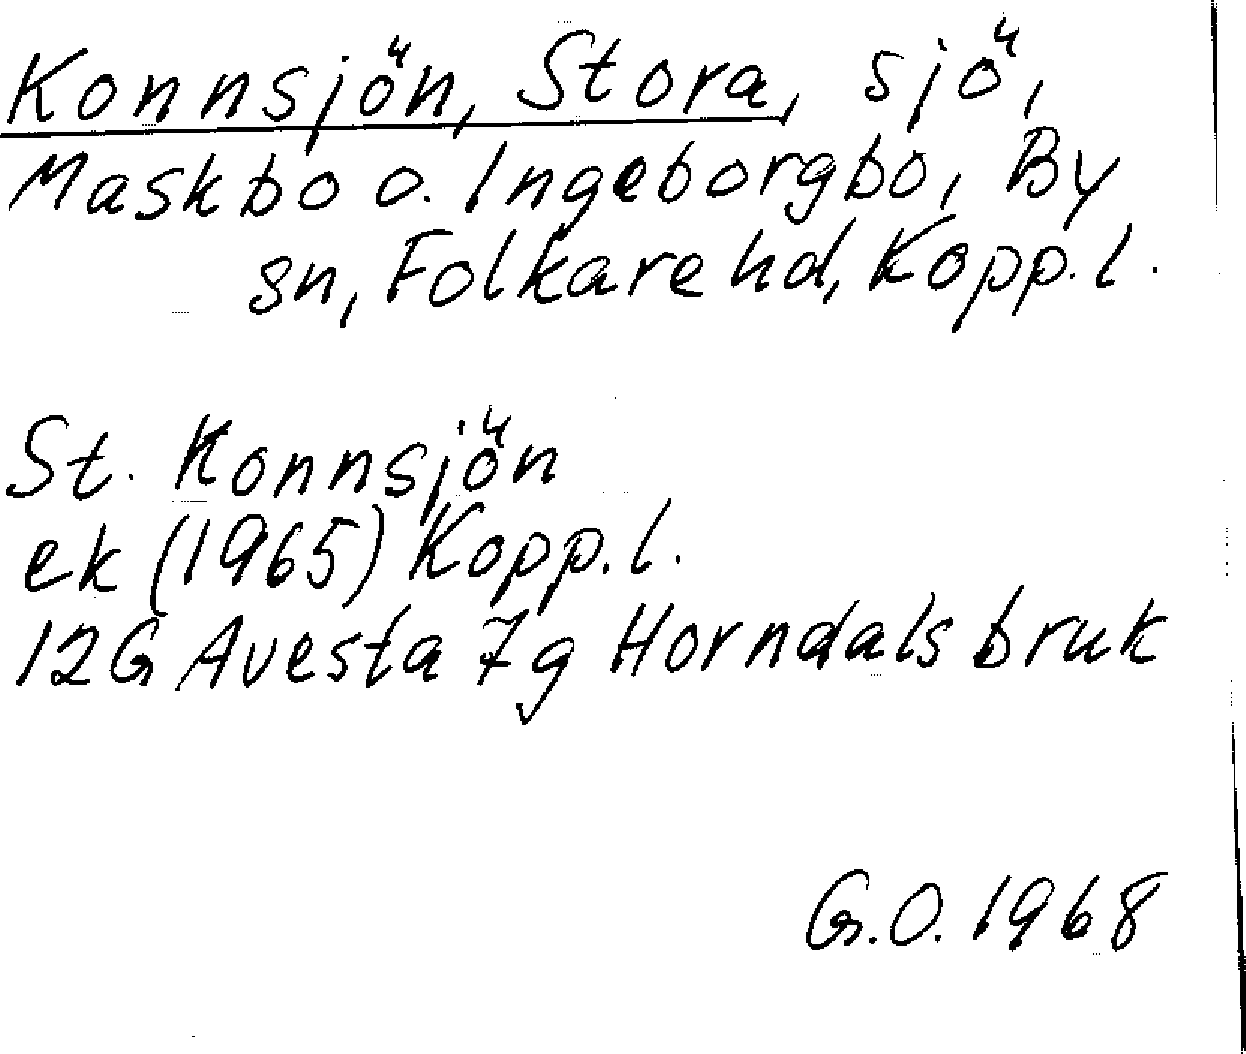 Konnsjön, Stora, sjö,
Maskbo o. Ingeborgbo, By
sn, Folkare hd, Kopp. l.
St. Konnsjön
ek (1965) Kopp. l.
12G Avesta 7g Horndals bruk
G.O. 1968